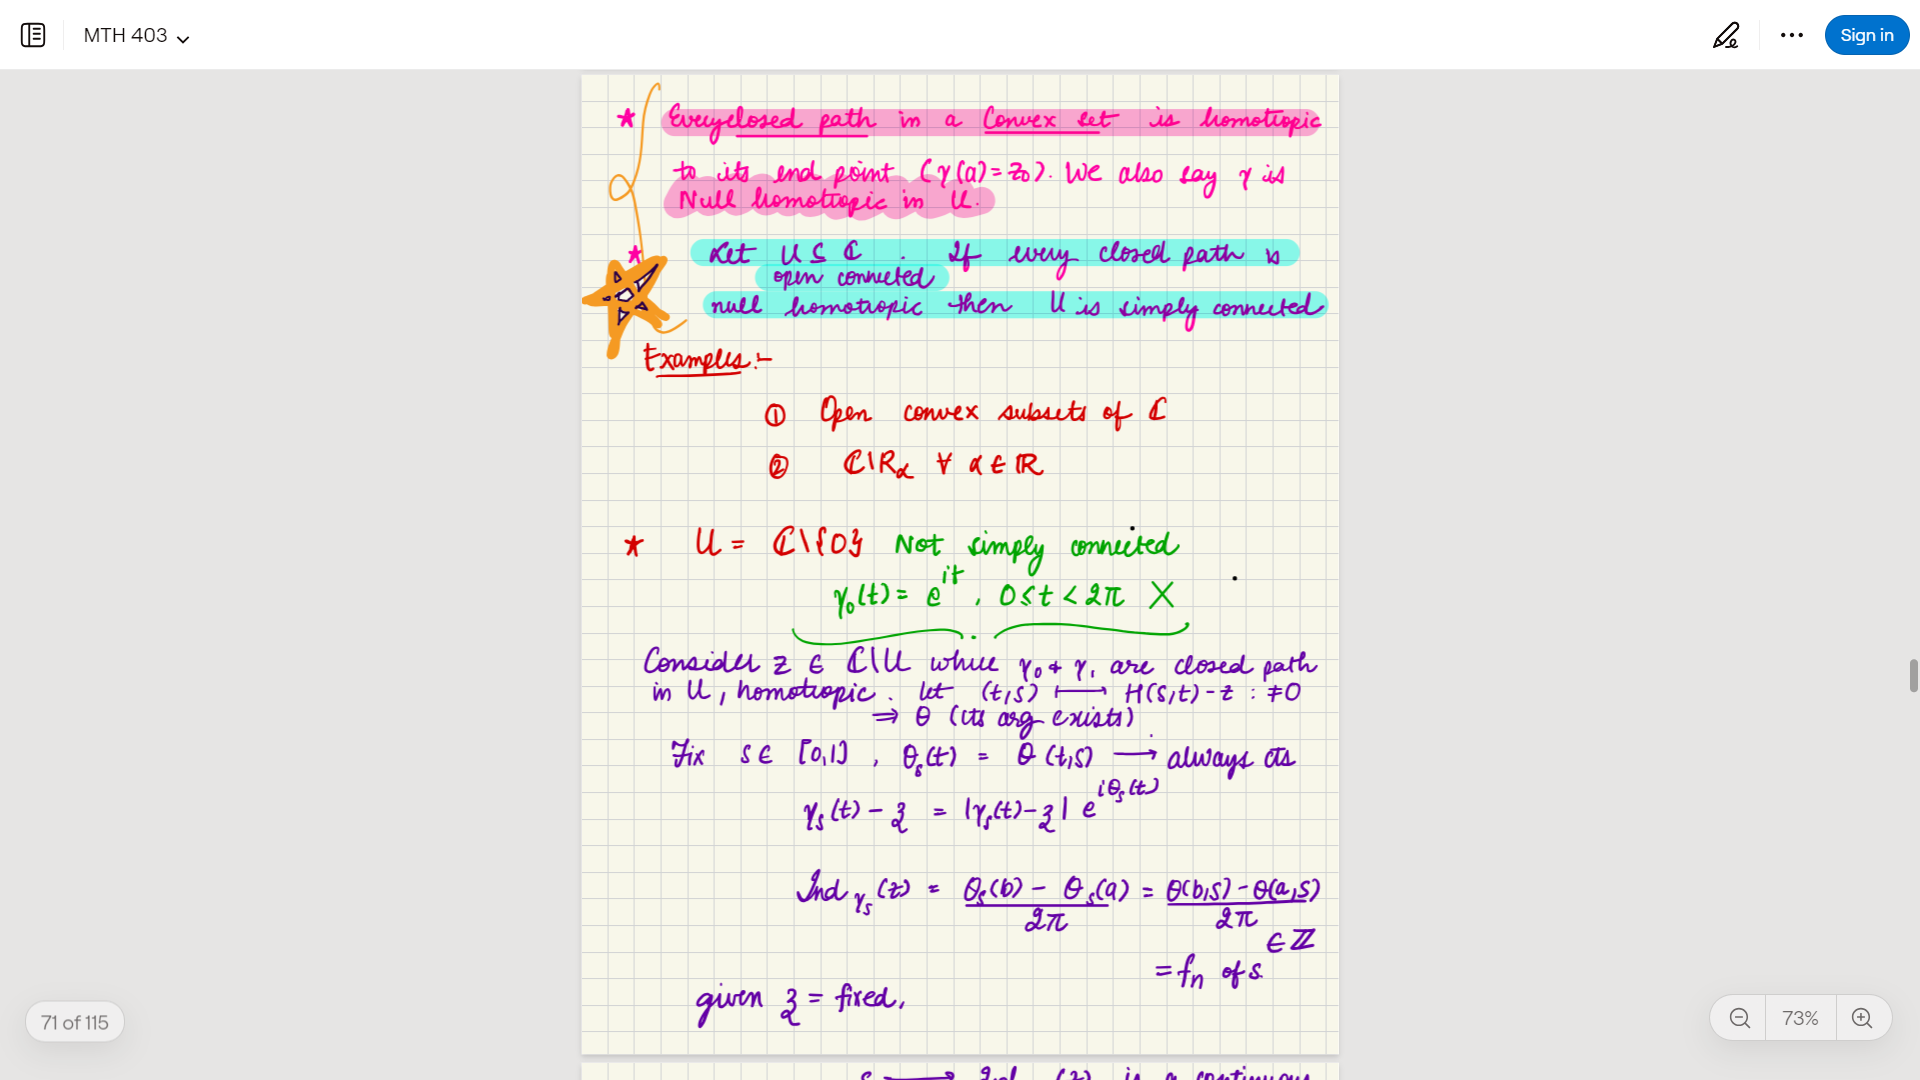 MTH 403
Sign in
★ Every closed path in a Convex set is homotropic
to its end point (γ(a) = z₀). We also say γ is
Null homotropic in U.
★ Let U ⊆ ℂ . If every closed path is
open connected
null homotropic then U is simply connected
Examples :-
① Open convex subsets of ℂ
② ℂ\R_α ∀ α ∈ ℝ
★ U = ℂ\{0} Not simply connected
γ₀(t) = e^{it} , 0 ≤ t < 2π X
Consider z ∈ ℂ\U where γ₀ & γ₁ are closed path
in U, homotropic. let (t,s) ⟼ H(s,t) - z : ≠ 0
⇒ θ (its arg exists)
Fix s ∈ [0,1] , θ_s(t) = θ(t,s) → always cts
γ_s(t) - z = |γ_s(t) - z| e^{iθ_s(t)}
Ind_{γ_s}(z) = (θ_s(b) - θ_s(a))/2π = (θ(b,s) - θ(a,s))/2π
∈ ℤ
= fn of s
given z = fixed,
71 of 115
73%